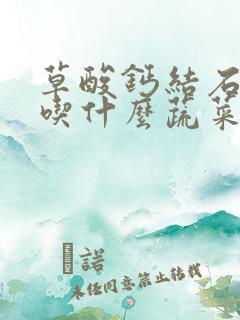 草酸鈣結石
喫什麼蔬菜
諾
未任同意禁止转载